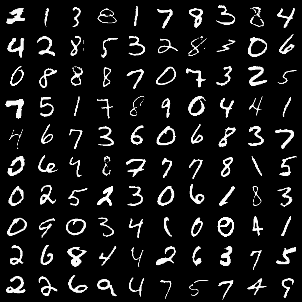 1 1 3 8 1 7 8 3 8 4
4 2 8 5 3 2 8 3 0 6
0 8 8 8 7 0 7 3 2 5
7 5 1 7 8 9 0 4 4 1
4 6 7 3 6 0 6 8 3 7
0 6 4 8 7 7 7 8 1 5
0 2 5 2 3 0 6 1 8 3
0 9 0 3 4 1 0 0 4 1
2 6 8 4 4 2 6 3 7 5
2 2 6 9 4 7 5 7 4 9